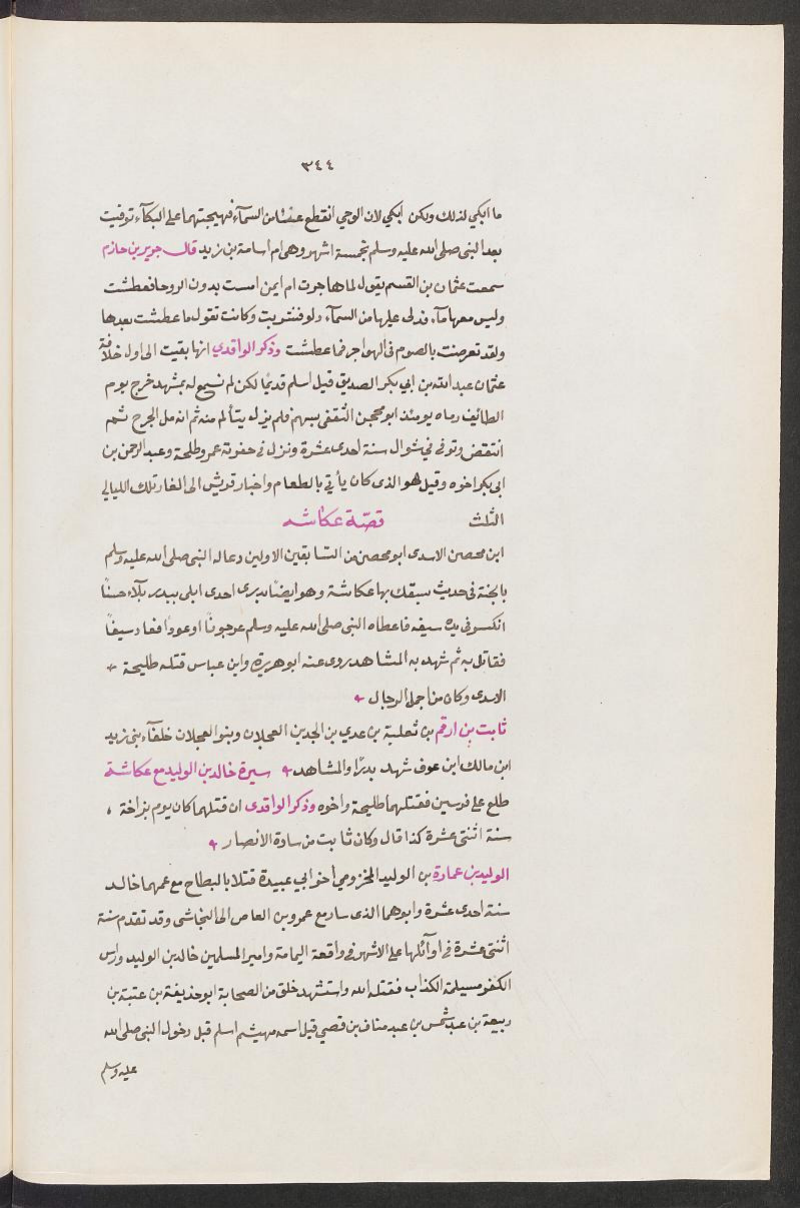 ٣٤٤
ما ابكي لذلك ولكن ابكي لان الوحي انقطع عنا من السمآء فهيجتهما على البكآء توفيت
بعد النبي صلى الله عليه وسلم بخمسة اشهر وهي ام اسامة بن زيد قال جرير بن حازم
سمعت عثمان بن القسم يقول لما هاجرت ام ايمن امست بدون الروحا فعطشت
وليس معها مآء فدلى عليها من السمآء دلو فشربت وكانت تقول ما عطشت بعدها
ولقد تعرضت بالصوم في الهواجر فما عطشت وذكر الواقدي انها بقيت الى اول خلافة
عثمان عبد الله بن ابي بكر الصديق قيل اسلم قديمًا لكن لم نسمع له بمشهد خرج يوم
الطائيف رماه يومئذ ابو محجن الثقفي بسهم فلم يزل يتألم منه ثم اندمل الجرح ثم
انتقض وتوفي في شوال سنة احدى عشرة ونزل في حفرته عمر وطلحة وعبد الرحمن بن
ابي بكر اخوه وقيل هو الذى كان يأتي بالطعام واخبار قريش الى الغار تلك الليالي
الثلث قصّة عكاشه
ابن محصن الاسدى ابو محصن من السّابقين الاولين دعا له النبي صلى الله عليه وسلم
بالجنة في حديث سبقك بها عكاشة وهو ايضًا بدرى احدى ابلى ببدر بلآء حسنًا
انكسر في يده سيفه فاعطاه النبي صلى الله عليه وسلم عرجونًا او عودًا فعاد سيفًا
فقاتل به ثم شهد به المشاهد روى عنه ابو هريرة وابن عباس قتله طليحة
الاسدى وكان من اجمل الرجال
ثابت بن ارقم بن ثعلبة بن عدي بن الجد بن العجلان وبنو العجلان حلفآء بني زيد
ابن مالك ابن عوف شهد بدرًا والمشاهد سيرة خالد بن الوليد مع عكاشة
طلع على فرسين فقتلهما طليحة واخوه وذكر الواقدى ان قتلهما كان يوم بزاخة
سنة اثنتي عشرة كذا قال وكان ثابت من سادة الانصار
الوليد بن عمارة بن الوليد المخزومي أخو ابي عبيدة قتلا بالبطاح مع عمهما خالد
سنة احدى عشرة وابوهما الذى سار مع عمرو بن العاص الى النجاشى وقد تقدم سنة
اثنتي عشرة في اوآئلها على الاشهر في واقعة اليمامة وامير المسلمين خالد بن الوليد وراس
الكفر مسيلمة الكذاب فقتله الله واستشهد خلق من الصحابة ابو حذيفة بن عتبة بن
ربيعة بن عبد شمس بن عبد مناف بن قصي قيل اسمه مهيشم اسلم قبل دخول النبي صلى الله
عليه وسلم